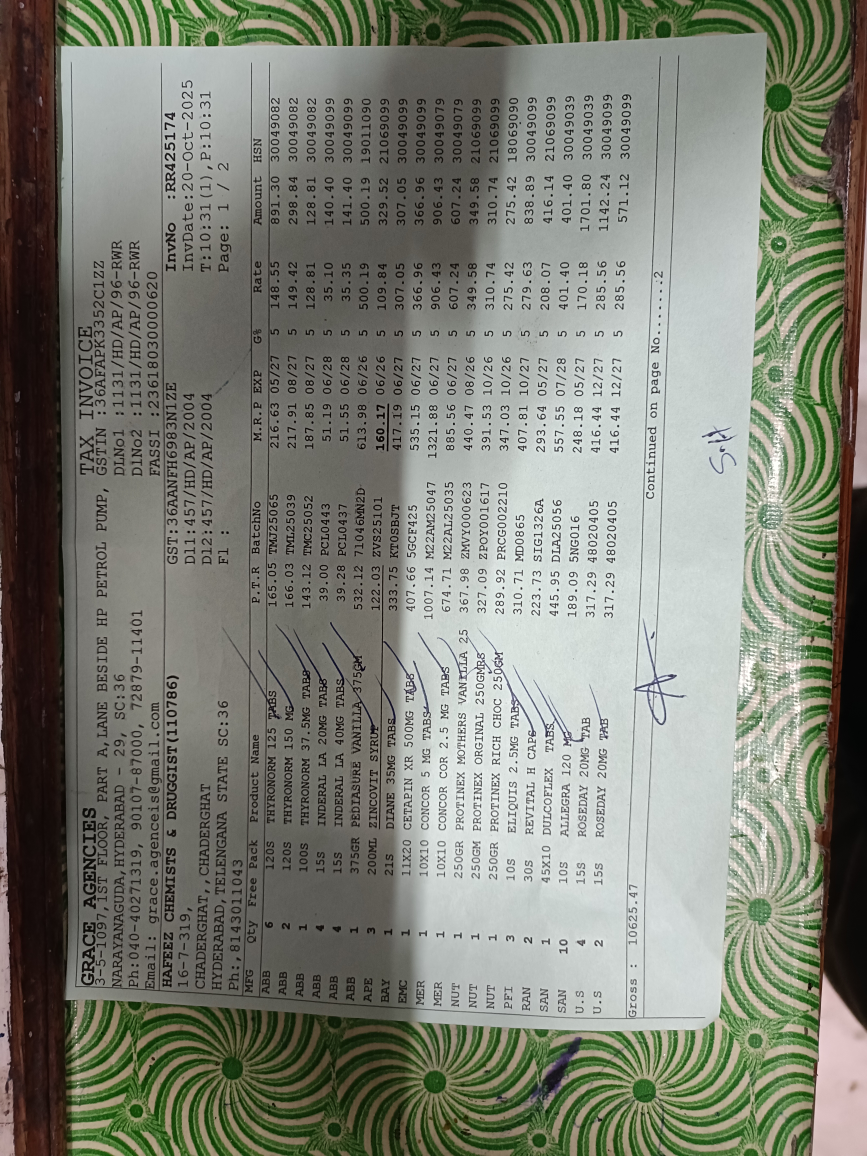 TAX INVOICE
GRACE AGENCIES
3-5-1097,1ST FLOOR, PART A,LANE BESIDE HP PETROL PUMP, GSTIN :36AFAPK3352C1ZZ
NARAYANAGUDA,HYDERABAD - 29, SC:36 DLNo1 :1131/HD/AP/96-RWR
Ph:040-40271319, 90107-87000, 72879-11401 DLNo2 :1131/HD/AP/96-RWR
Email: grace.agenceis@gmail.com FASSI :23618030000620
HAFEEZ CHEMISTS & DRUGGIST(110786) GST:36AANFH6983N1ZE InvNo :RR425174
16-7-319, D11:457/HD/AP/2004 InvDate:20-Oct-2025
CHADERGHAT,,CHADERGHAT D12:457/HD/AP/2004 T:10:31(1),P:10:31
HYDERABAD,TELENGANA STATE SC:36 Fl : Page: 1 / 2
Ph:,8143011043
MFG Qty Free Pack Product Name P.T.R BatchNo M.R.P EXP G% Rate Amount HSN
ABB 6 120S THYRONORM 125 TABS 165.05 TMJ25065 216.63 05/27 5 148.55 891.30 30049082
ABB 2 120S THYRONORM 150 MG 166.03 TML25039 217.91 08/27 5 149.42 298.84 30049082
ABB 1 100S THYRONORM 37.5MG TABS 143.12 TMC25052 187.85 08/27 5 128.81 128.81 30049082
ABB 4 15S INDERAL LA 20MG TABS 39.00 PCL0443 51.19 06/28 5 35.10 140.40 30049099
ABB 4 15S INDERAL LA 40MG TABS 39.28 PCL0437 51.55 06/28 5 35.35 141.40 30049099
ABB 1 375GR PEDIASURE VANILLA 375GM 532.12 71046MN2D 613.98 06/26 5 500.19 500.19 19011090
APE 3 200ML ZINCOVIT SYRUP 122.03 ZVS25101 160.17 06/26 5 109.84 329.52 21069099
BAY 1 21S DIANE 35MG TABS 333.75 KT0SBJT 417.19 06/27 5 307.05 307.05 30049099
EMC 1 11X20 CETAPIN XR 500MG TABS 407.66 5GCF425 535.15 06/27 5 366.96 366.96 30049099
MER 1 10X10 CONCOR 5 MG TABS 1007.14 M22AM25047 1321.88 06/27 5 906.43 906.43 30049079
MER 1 10X10 CONCOR COR 2.5 MG TABS 674.71 M22AL25035 885.56 06/27 5 607.24 607.24 30049079
NUT 1 250GR PROTINEX MOTHERS VANILLA 25 367.98 ZMVY000623 440.47 08/26 5 349.58 349.58 21069099
NUT 1 250GM PROTINEX ORGINAL 250GMRS 327.09 ZPOY001617 391.53 10/26 5 310.74 310.74 21069099
NUT 1 250GR PROTINEX RICH CHOC 250GM 289.92 PRCG002210 347.03 10/26 5 275.42 275.42 18069090
PFI 3 10S ELIQUIS 2.5MG TABS 310.71 MD0865 407.81 10/27 5 279.63 838.89 30049099
RAN 2 30S REVITAL H CAPS 223.73 SIG1326A 293.64 05/27 5 208.07 416.14 21069099
SAN 1 45X10 DULCOFLEX TABS 445.95 DLA25056 557.55 07/28 5 401.40 401.40 30049039
SAN 10 10S ALLEGRA 120 MG 189.09 5NG016 248.18 05/27 5 170.18 1701.80 30049039
U.S 4 15S ROSEDAY 20MG TAB 317.29 48020405 416.44 12/27 5 285.56 1142.24 30049099
U.S 2 15S ROSEDAY 20MG TAB 317.29 48020405 416.44 12/27 5 285.56 571.12 30049099
Gross : 10625.47 Continued on page No.......2